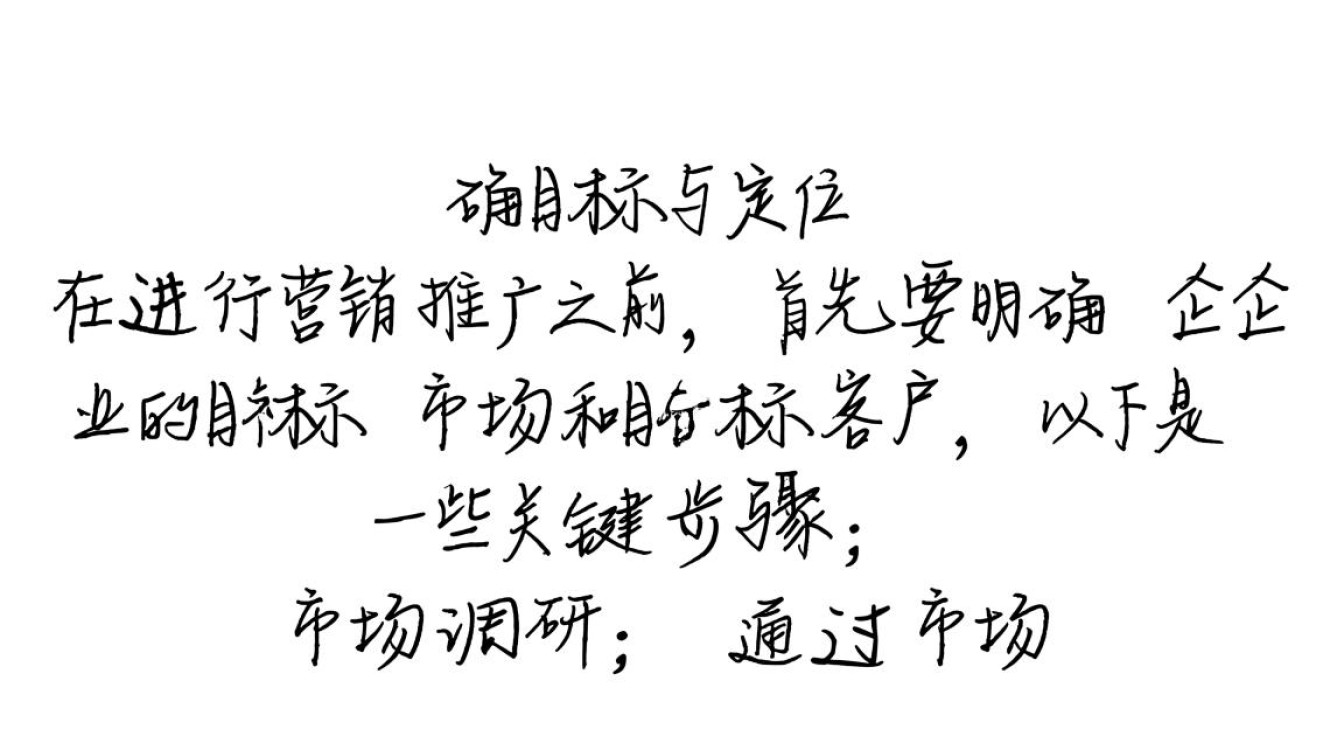 确目标与定位
在进行营销推广之前，首先要明确 企企
业的目标 市场和目标客户，以下是
一些关键步骤；
市场调研； 通过市场